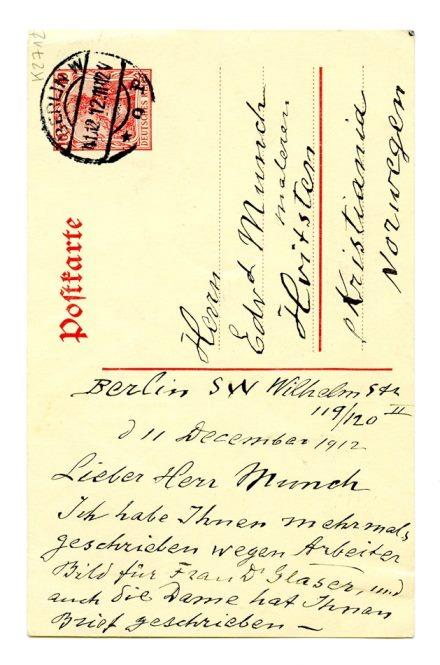 K2712
BERLIN W
11.12.12.11-12V
* 9 *
DEUTSCHES REICH
Postkarte
Herrn
Edvd Munch
maleren
Hvitsten
p Kristiania
Norwegen
Berlin SW Wilhelmstr
119/120 II
d 11 December 1912
Lieber Herr Munch
Ich habe Ihnen mehrmals
geschrieben wegen Arbeiter
Bild für Frau Dr Glaser, und
auch die Dame hat Ihnen
Brief geschrieben –